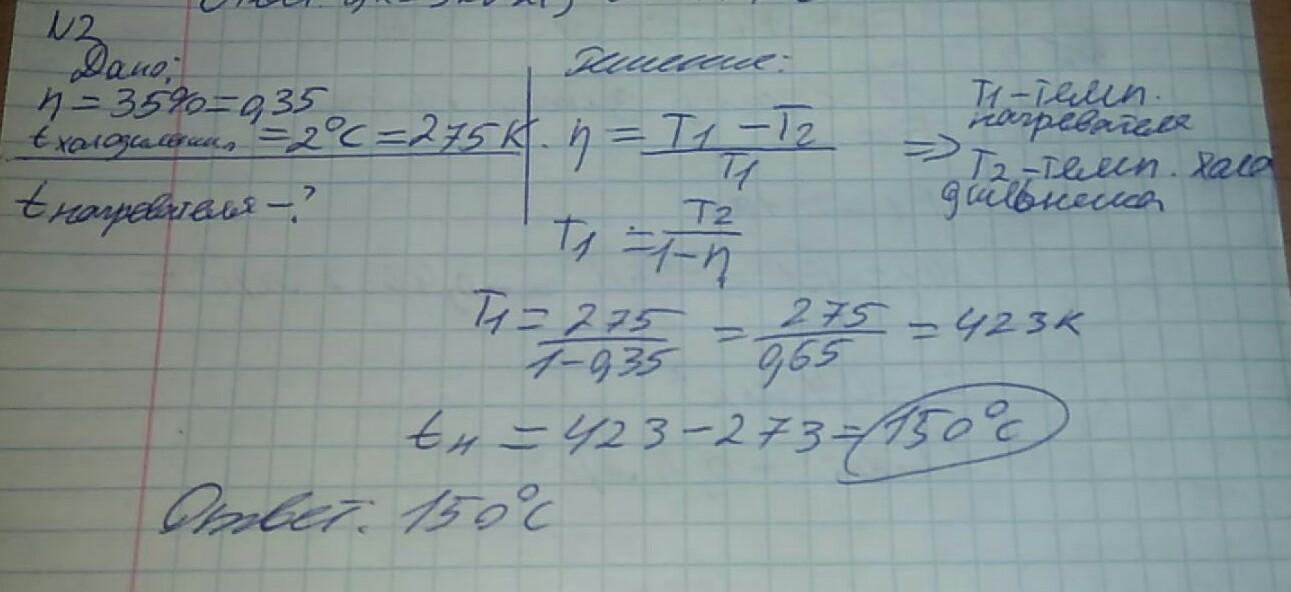 N2
Дано:
η = 35% = 0,35
t холодильник. = 2°C = 275 K.
t нагревателя - ?
Решение:
η = T1 - T2 / T1 =>
T1 - темп.
нагревателя
T2 - темп. холо
дильника
T1 = T2 / 1-η
T1 = 275 / 1-0,35 = 275 / 0,65 = 423 K
tн = 423 - 273 = 150°C
Ответ. 150°C